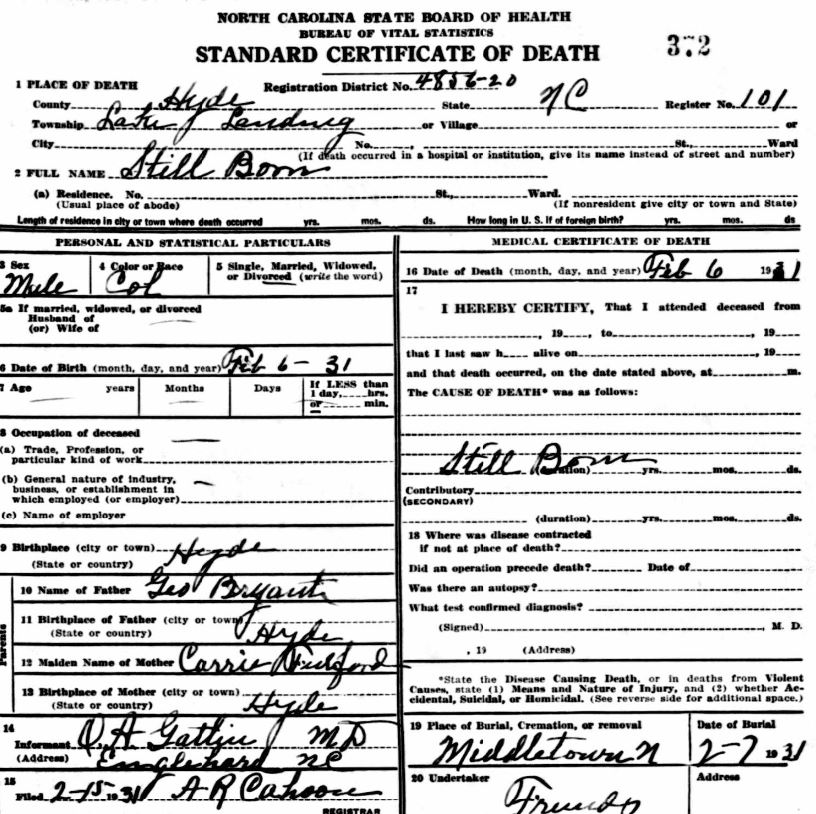 NORTH CAROLINA STATE BOARD OF HEALTH
BUREAU OF VITAL STATISTICS
STANDARD CERTIFICATE OF DEATH
372
1 PLACE OF DEATH Registration District No. 4856-20
County Hyde State NC Register No. 101
Township Lake Landing or Village or
City No. , St., Ward
(If death occurred in a hospital or institution, give its name instead of street and number)
2 FULL NAME Still Born
(a) Residence. No. St., Ward.
(Usual place of abode) (If nonresident give city or town and State)
Length of residence in city or town where death occurred yrs. mos. ds. How long in U. S. if of foreign birth? yrs. mos. ds
PERSONAL AND STATISTICAL PARTICULARS
3 Sex 4 Color or Race 5 Single, Married, Widowed, or Divorced (write the word)
Male Col
5a If married, widowed, or divorced
Husband of
(or) Wife of
6 Date of Birth (month, day, and year) Feb 6 - 31
7 Age years Months Days If LESS than 1 day, hrs. or min.
8 Occupation of deceased
(a) Trade, Profession, or
particular kind of work
(b) General nature of industry,
business, or establishment in
which employed (or employer)
(c) Name of employer
9 Birthplace (city or town) Hyde
(State or country)
Parents
10 Name of Father Geo Bryant
11 Birthplace of Father (city or town)
(State or country) Hyde
12 Maiden Name of Mother Carrie Fulford
13 Birthplace of Mother (city or town)
(State or country) Hyde
14
Informant MD
(Address) Englehard NC
15
Filed 2-15 1931 A R Cahoon
REGISTRAR
MEDICAL CERTIFICATE OF DEATH
16 Date of Death (month, day, and year) Feb 6 1931
17
I HEREBY CERTIFY, That I attended deceased from
, 19 , to , 19
that I last saw h alive on , 19
and that death occurred, on the date stated above, at m.
The CAUSE OF DEATH* was as follows:
Still Born
(duration) yrs. mos. ds.
Contributory
(SECONDARY)
(duration) yrs. mos. ds.
18 Where was disease contracted
if not at place of death?
Did an operation precede death? Date of
Was there an autopsy?
What test confirmed diagnosis?
(Signed) , M. D.
, 19 (Address)
*State the Disease Causing Death, or in deaths from Violent
Causes, state (1) Means and Nature of Injury, and (2) whether Ac-
cidental, Suicidal, or Homicidal. (See reverse side for additional space.)
19 Place of Burial, Cremation, or removal Date of Burial
Middletown N 2-7 1931
20 Undertaker Address